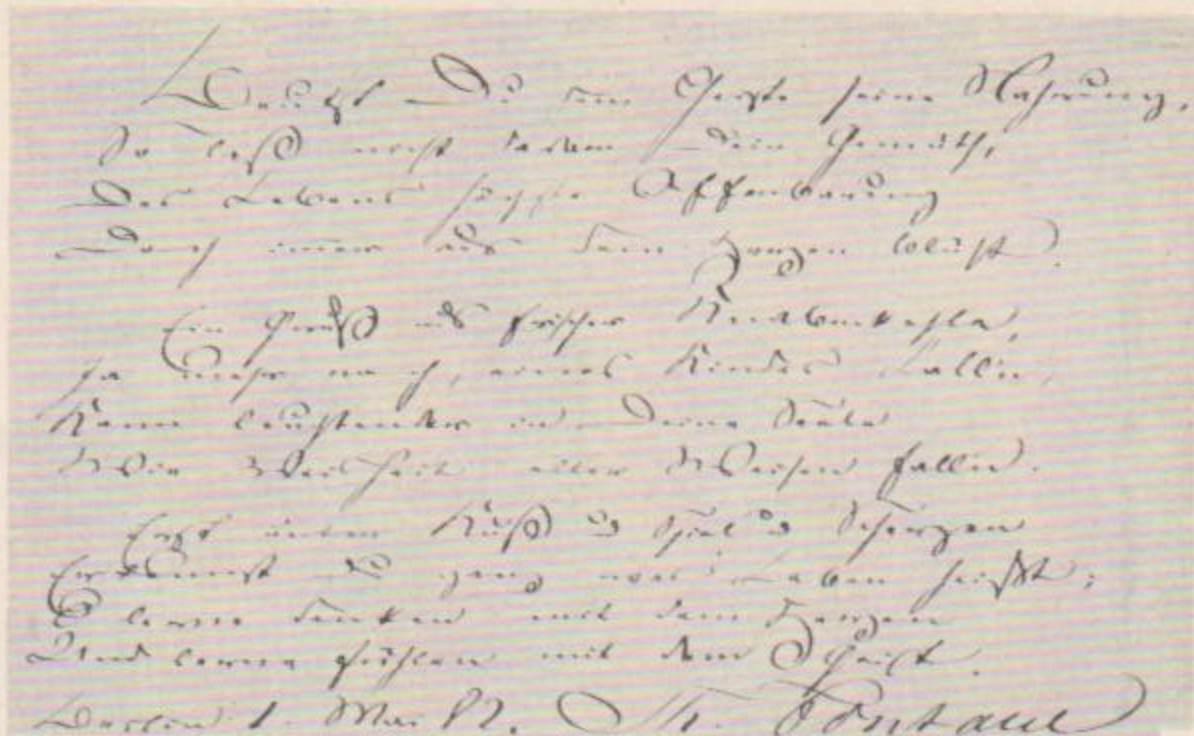 Beutst Du dem Geiste seine Nahrung,
So laß nicht darben Dein Gemüth,
Des Lebens höchste Offenbarung
Doch immer aus dem Herzen blüht.
Ein Gruß aus frischer Knabenkehle,
Ja mehr noch, eines Kindes Lallen,
Kann leuchtender in Deine Seele
Wie Weisheit aller Weisen fallen.
Erst unter Kuß u Spiel u Scherzen
Erkennst Du ganz was Leben heißt;
O lerne denken mit dem Herzen
Und lerne fühlen mit dem Geist.
Berlin 1. Mai 82. Th. Fontane